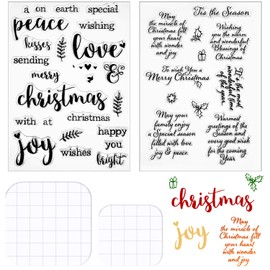 a on earth special
peace wishing
kisses love
sending
merry
christmas
with at christmas
joy happy
wishes you
bright
'Tis the Season
May the
miracle of
Christmas fill
your heart
with wonder
and joy
Wishing you
the warm and
wonderful
Blessings of
Christmas
To wish You a
Merry Christmas
It's the most
wonderful
time
of the
Year
May you &
your family
enjoy a
Special season
filled with love,
joy & peace
Warmest
greetings of the
Season and
every good wish
for the coming
Year
christmas
joy
May the
miracle of
Christmas fill
your heart
with wonder
and joy